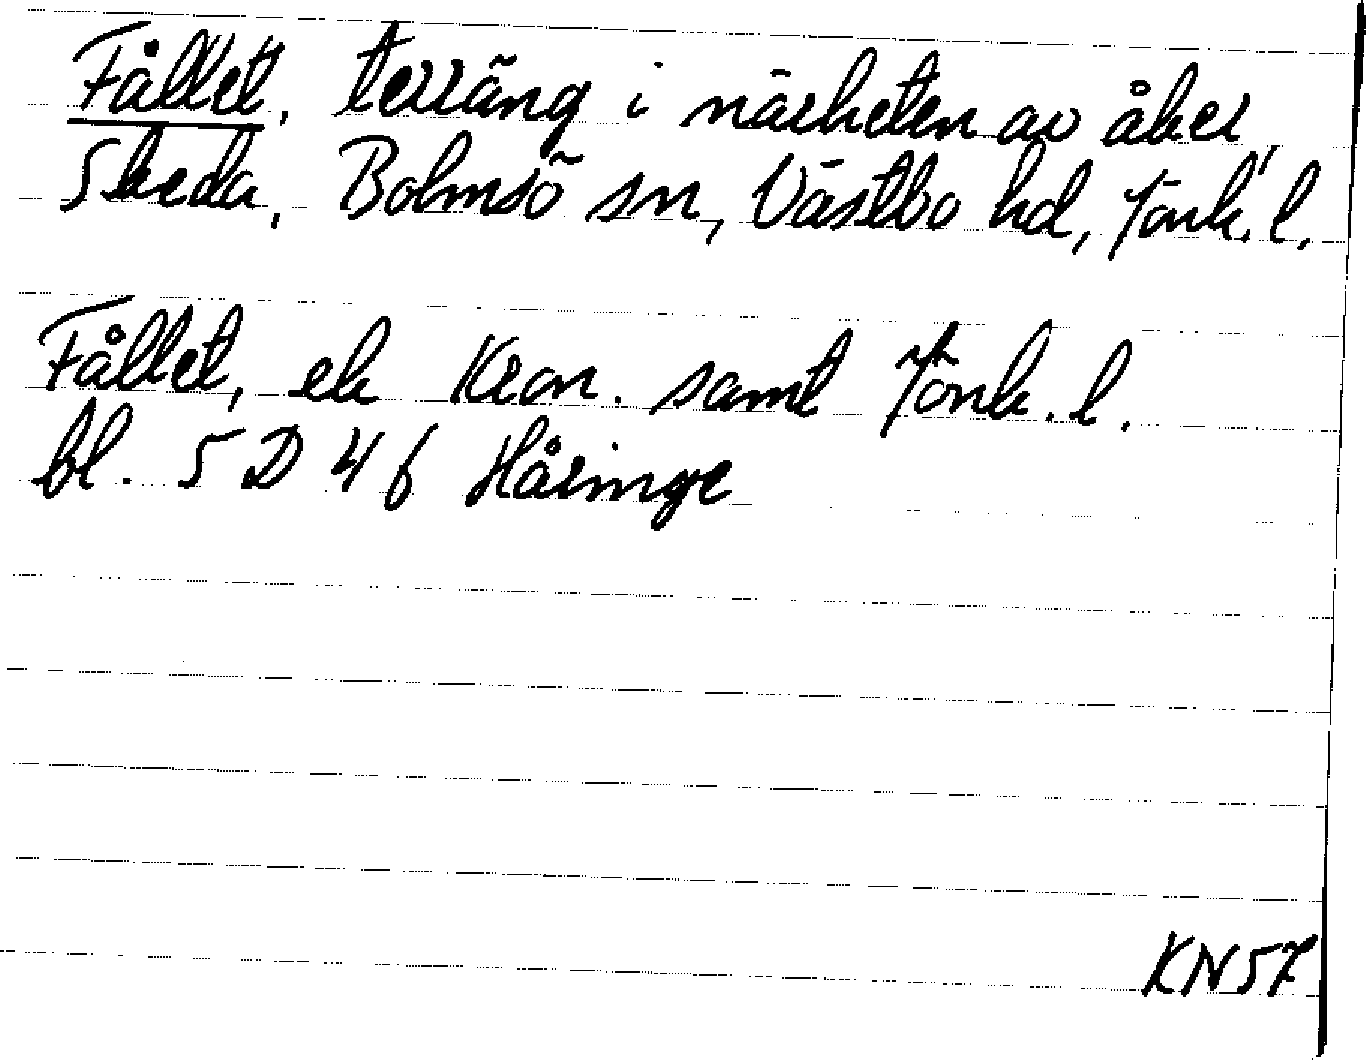 Fållet, terräng i närheten av åker,
Skeda, Bolmsö sn, Västbo hd, Jönk. l.
Fållet, ek Kron. samt Jönk. l.
bl. 5 D 4 f Håringe
KN57